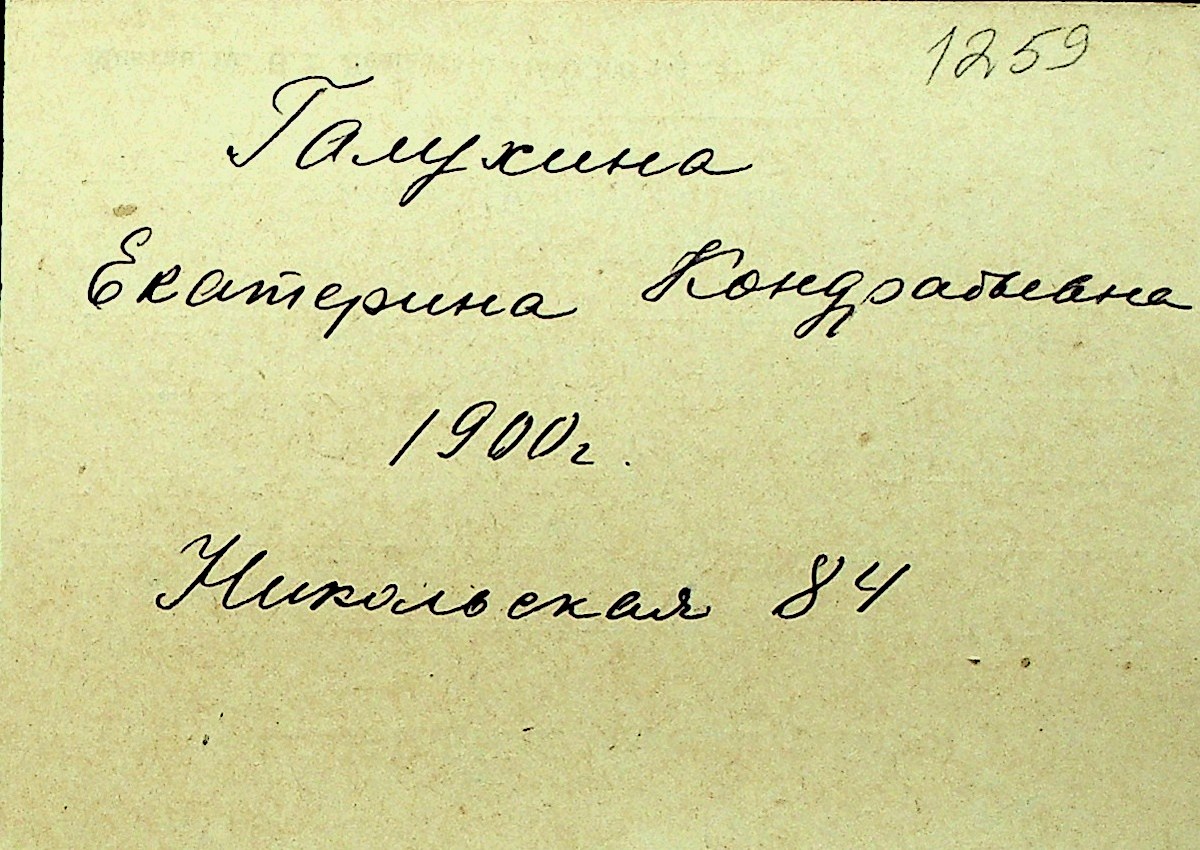 1259
Галухина
Екатерина Кондратьевна
1900г.
Никольская 84